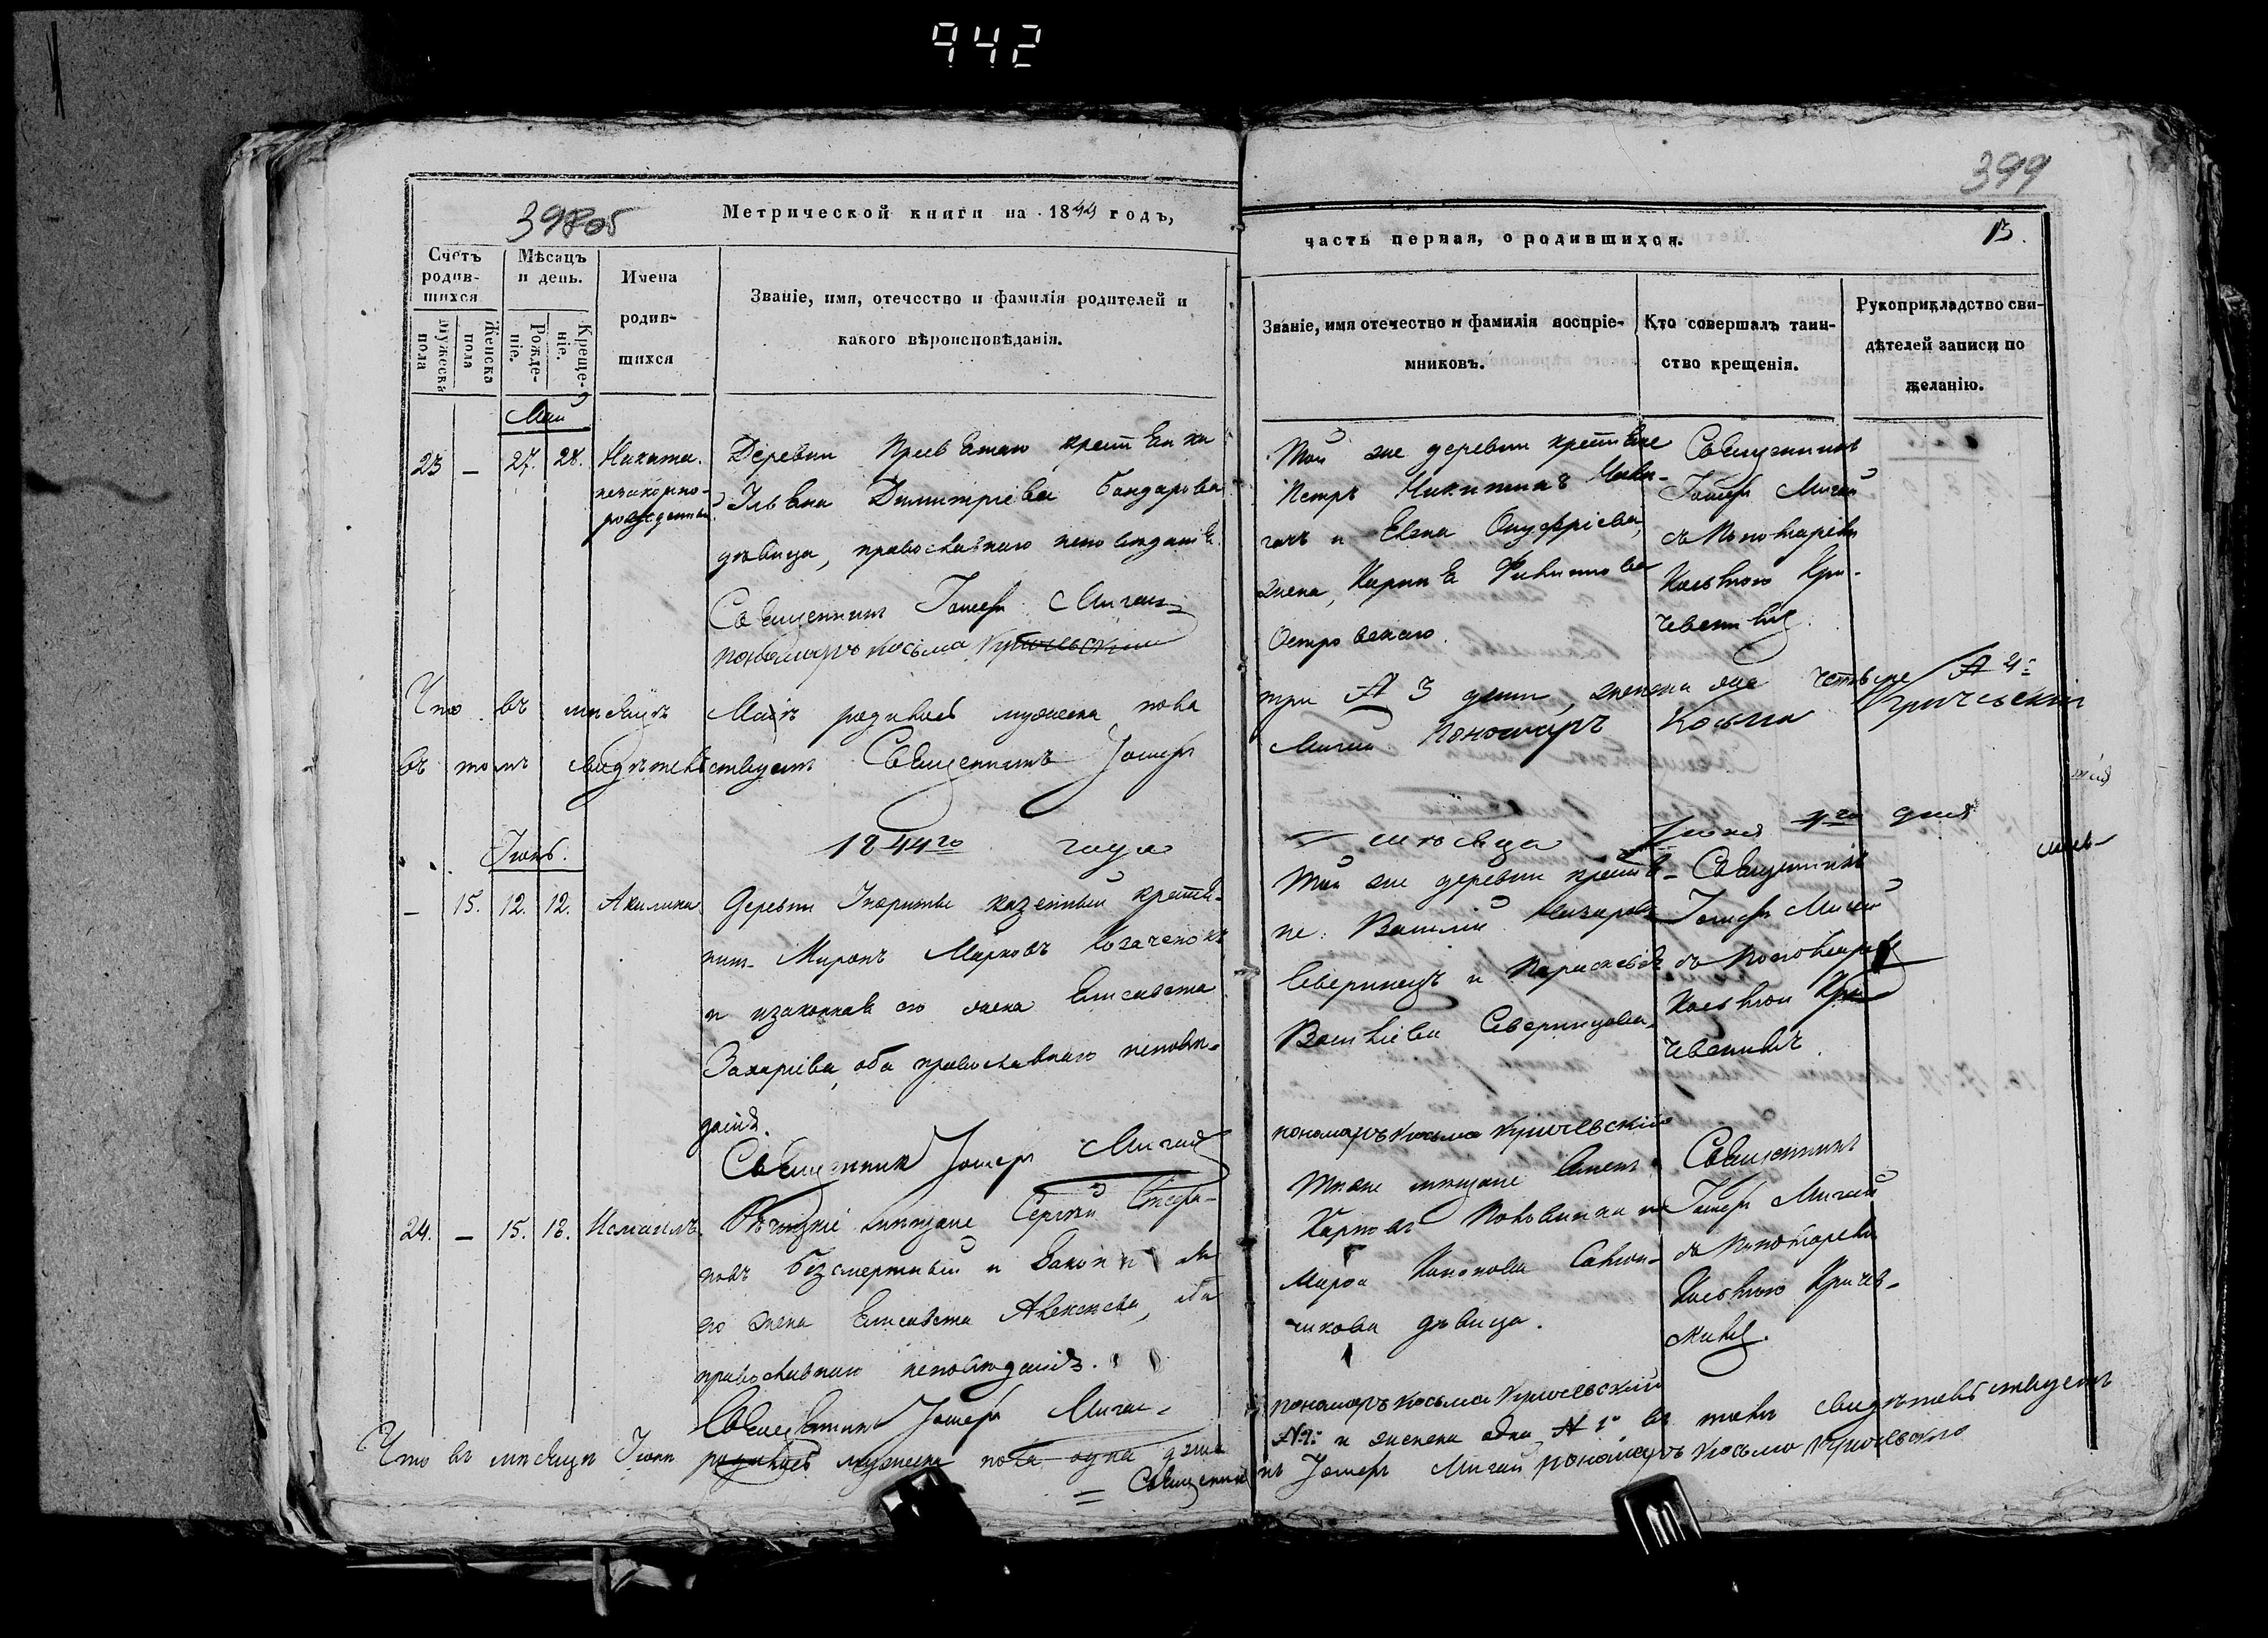 942
399
398об
Метрической книги на 1844 годъ,
часть первая, о родившихся.
13.
Счетъ родив-шихся
Мужеска пола
Женска пола
Мѣсяцъ и день.
Рожде-ніе.
Креще-ніе.
Имена
родив-
шихся
Званіе, имя, отечество и фамилія родителей и
какого вѣроисповѣданія.
Званіе, имя отечество и фамилія воспріе-
мниковъ.
Кто совершалъ таин-
ство крещенія.
Рукоприкладство сви-
дѣтелей записи по
желанію.
Май
23 — 27. 28. Никита.
незаконно-
рожденный
Деревни
Димитріева Бондарова
дѣвица, православнаго исповѣданія.
Священникъ Іосифъ Мигай
пономарь Косьма Кричевскій
Той же деревни крестьяне
Петръ Никитинъ
и Елена Онуфріева,
жена, Карпа Филиппова
Островскаго.
Священникъ
Іосифъ Мигай
съ Пономаремъ
Косьмою Кри-
чевскимъ.
Что въ мѣсяцѣ Маіѣ родилось мужеска пола три № 3 дѣти, женска же четыре № 4:
въ томъ свидѣтельствуемъ Священникъ Іосифъ Мигай Пономарь Косьма Кричевскій
1844го года мѣсяца Іюня дня
Іюнь.
— 15. 12. 12. Акилина
Деревни казенный крестья-
нин Миронъ Марковъ Козаченокъ
и законная его жена Елисавета
Захаріева, оба православнаго исповѣ-
данія.
Священникъ Іосифъ Мигай
Той же деревни крестья-
не: Василій Назаровъ
Северинецъ и Параскевія
Васильева Северинцова.
Священникъ
Іосифъ Мигай
съ Пономаремъ
Косьмою Кри-
чевскимъ.
пономарь Косьма Кричевскій
24. — 15. 18. Исмаилъ.
мѣщане Сергѣй
Безсмертный и Законная
его жена Елисавета Алексѣева, оба
православнаго исповѣданія.
Священникъ Іосифъ Мигай
мѣщане
Карповъ и
Марѳа
дѣвица.
Священникъ
Іосифъ Мигай
съ Пономаремъ
Косьмою Кричев-
скимъ.
пономарь Косьма Кричевскій
Что въ мѣсяцѣ Іюнѣ родилось мужеска пола одна душа № 1: и женска одна № 1: въ томъ свидѣтельствуемъ
Священникъ Іосифъ Мигай пономарь Косьма Кричевскій